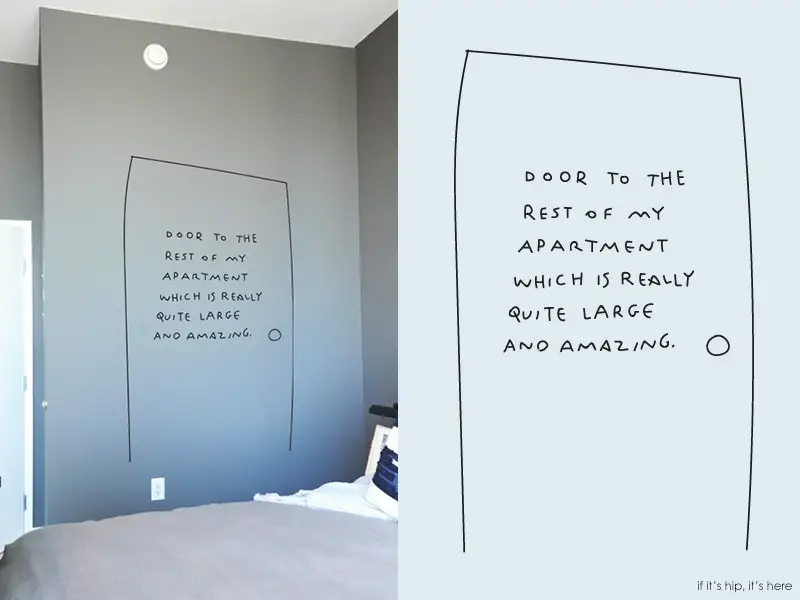 DOOR TO THE
REST OF MY
APARTMENT
WHICH IS REALLY
QUITE LARGE
AND AMAZING.
DOOR TO THE
REST OF MY
APARTMENT
WHICH IS REALLY
QUITE LARGE
AND AMAZING.
if it's hip, it's here